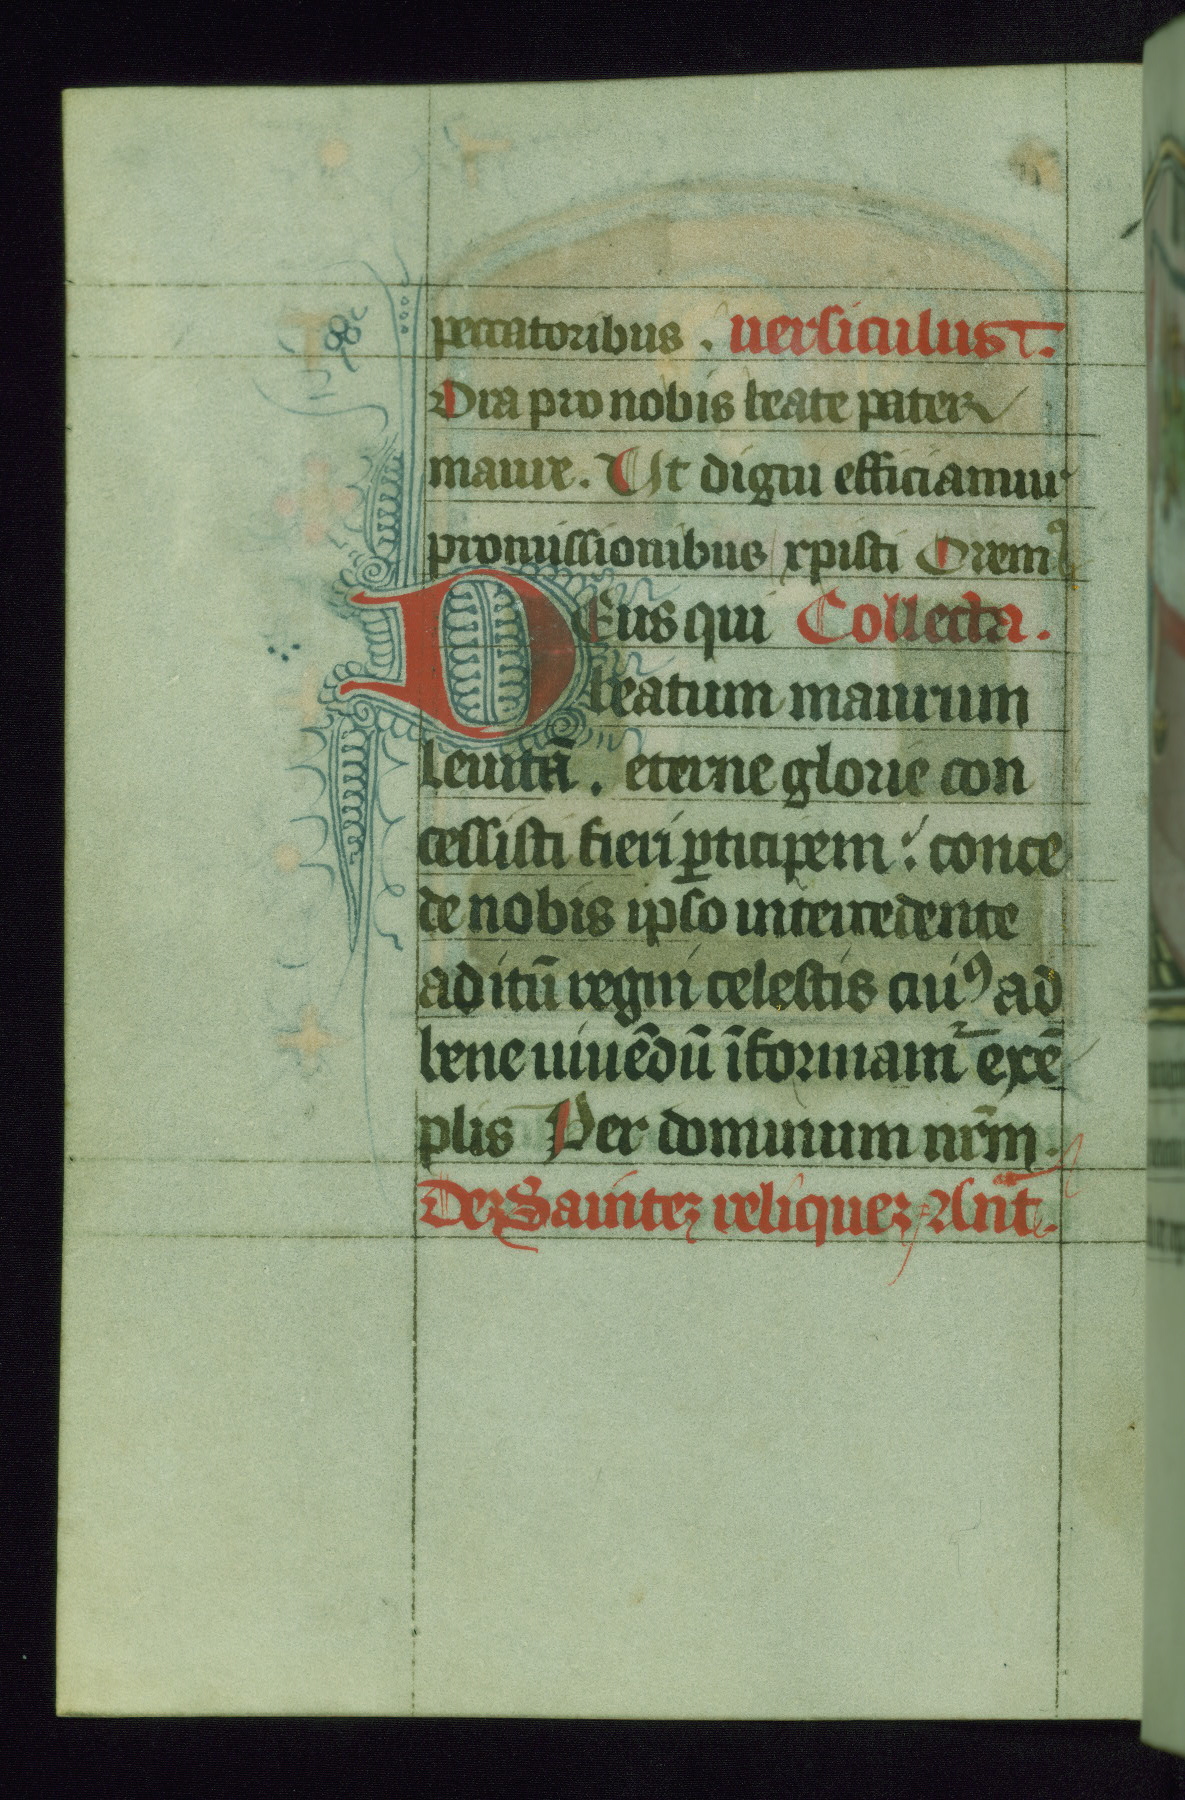 peccatoribus . uersiculus.
Ora pro nobis beate pater
maure. Ut digni efficiamur
promissionibus xpisti Orem⁹
DEus qui Collecta.
beatum maurum
leuitā . eterne glorie con
cessisti fieri ꝑticipem : conce
de nobis ipso intercedente
aditū regni celestis cui⁹ ad
bene uiuēdū īformam᷑ exē
plis Per dominum nr̄m.
Dez Saintez reliquez Ant̄.